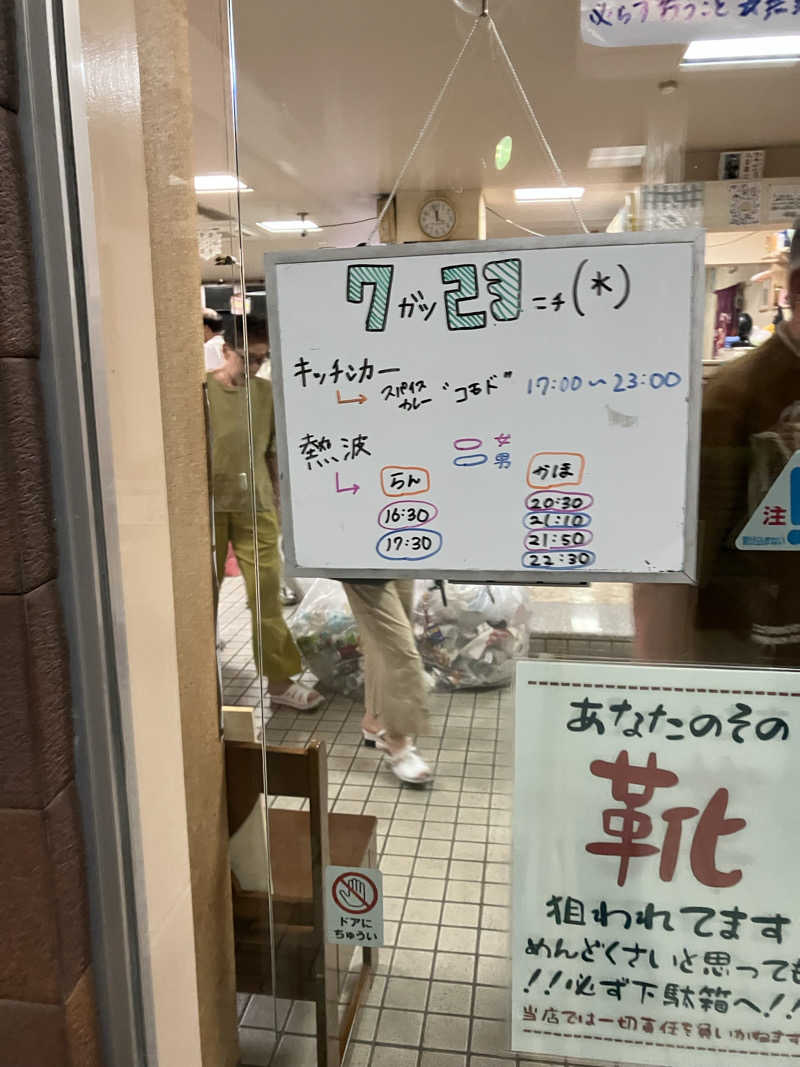 7ガツ23ニチ(水)
キッチンカー
スパイス
カレー
"コモド"
17:00〜23:00
熱波
女
男
らん
16:30
17:30
かほ
20:30
21:10
21:50
22:30
注
ドアに
ちゅうい
あなたのその
靴
狙われてます
めんどくさいと思っても
!!必ず下駄箱へ!!
当店では一切責任を負いかねます